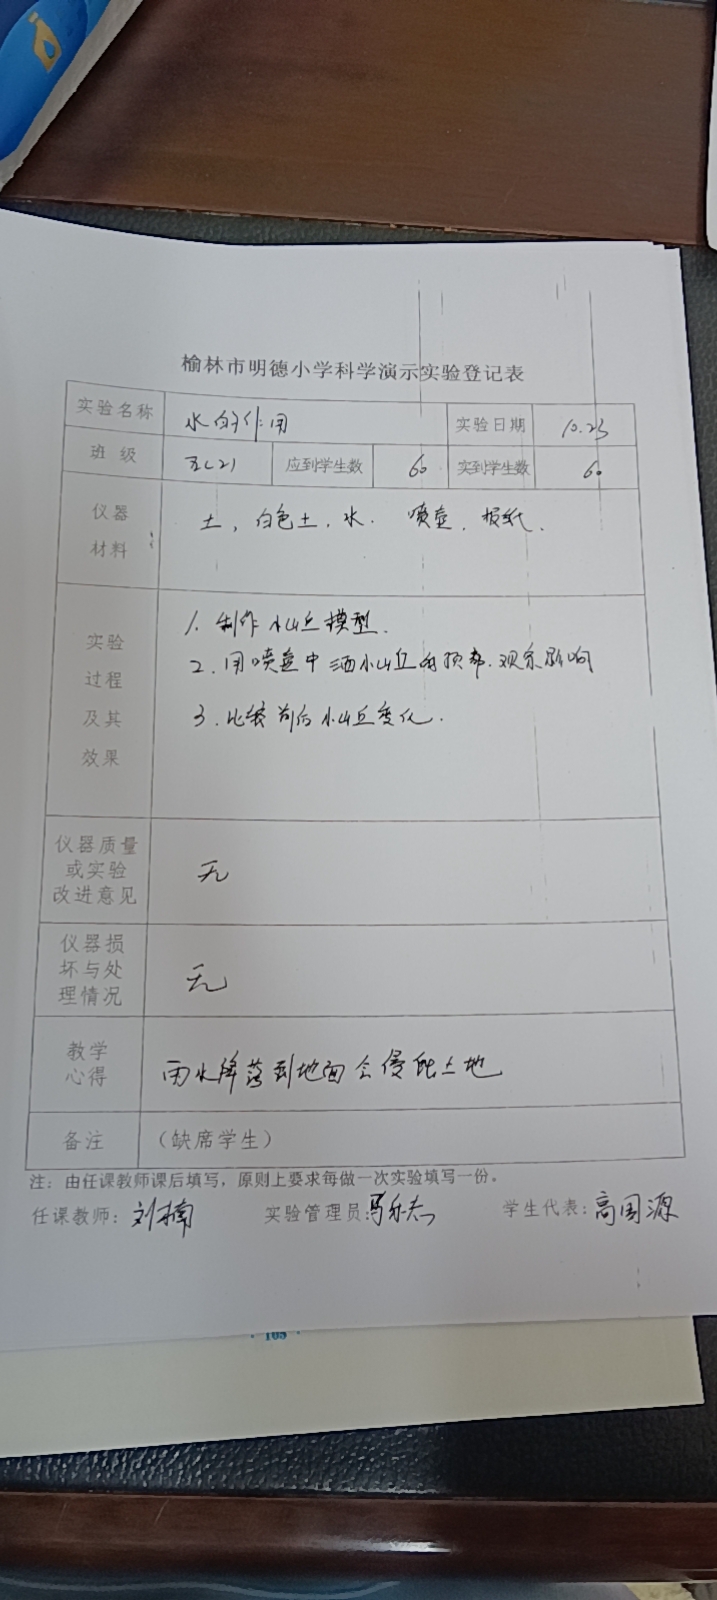 榆林市明德小学科学演示实验登记表
实验名称 水的作用 实验日期 10.23
班级 五(2) 应到学生数 60 实到学生数 60
仪器
材料
土，白色土，水. 喷壶，报纸.
实验
过程
及其
效果
1. 制作小山丘模型.
2. 用喷壶中洒小山丘的顶部.观察影响
3. 比较前后小山丘变化.
仪器质量
或实验
改进意见
无
仪器损
坏与处
理情况
无
教学
心得
雨水降落到地面会侵蚀土地
备注 （缺席学生）
注：由任课教师课后填写，原则上要求每做一次实验填写一份。
任课教师：刘楠 实验管理员: 学生代表:高国源
· 105 ·